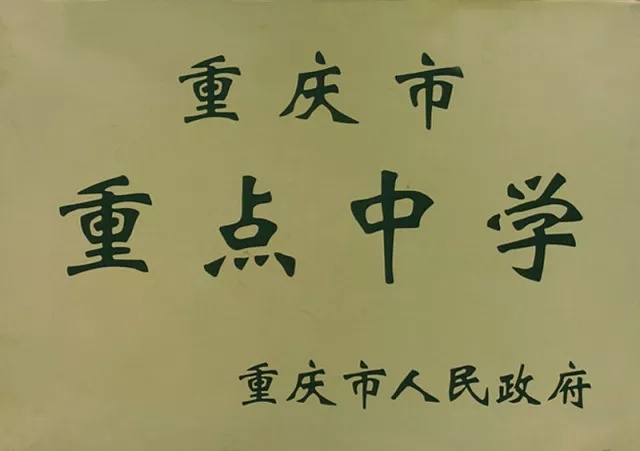 重庆市
重点中学
重庆市人民政府